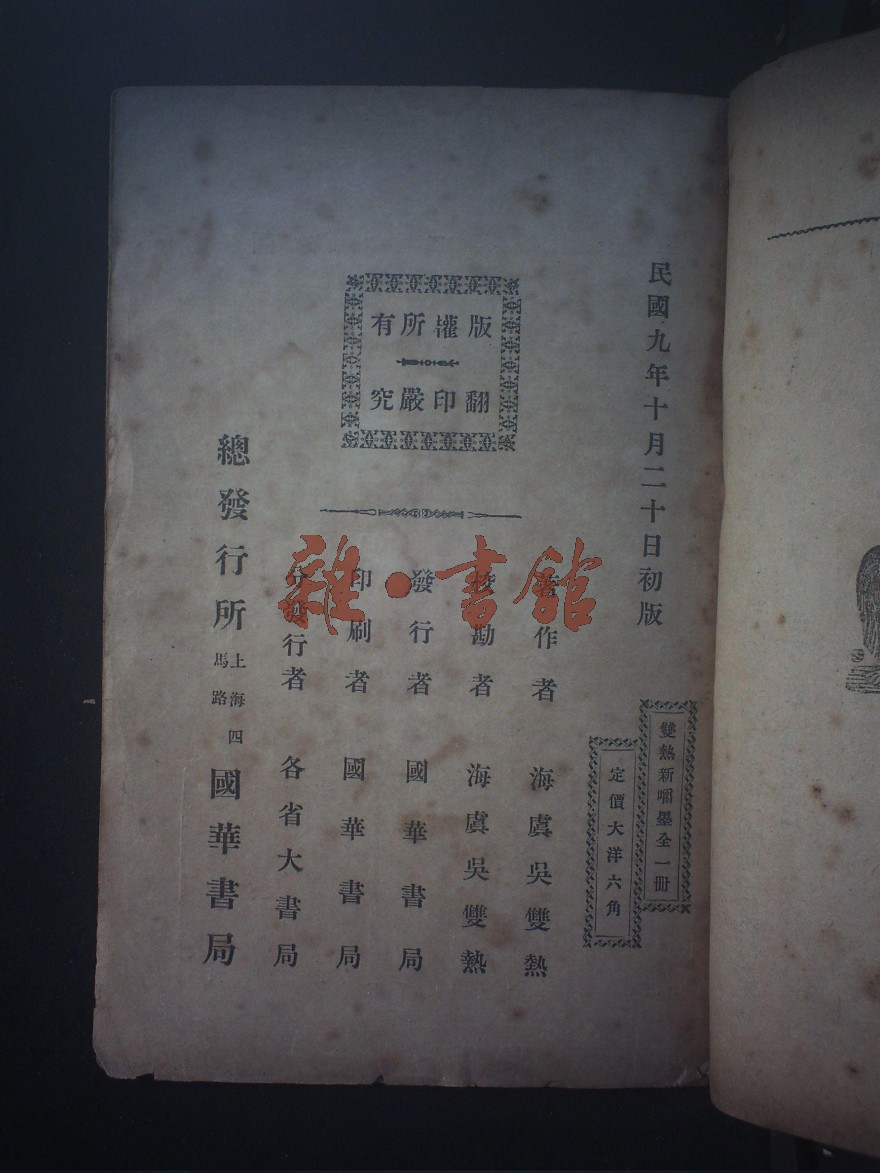 民國九年十月二十日初版
雙熱新嚼墨全一冊
定價大洋六角
版權所有
翻印嚴究
著作者 海虞吳雙熱
校勘者 海虞吳雙熱
發行者 國華書局
印刷者 國華書局
分發行者 各省大書局
總發行所 上海四馬路 國華書局
雜·書館